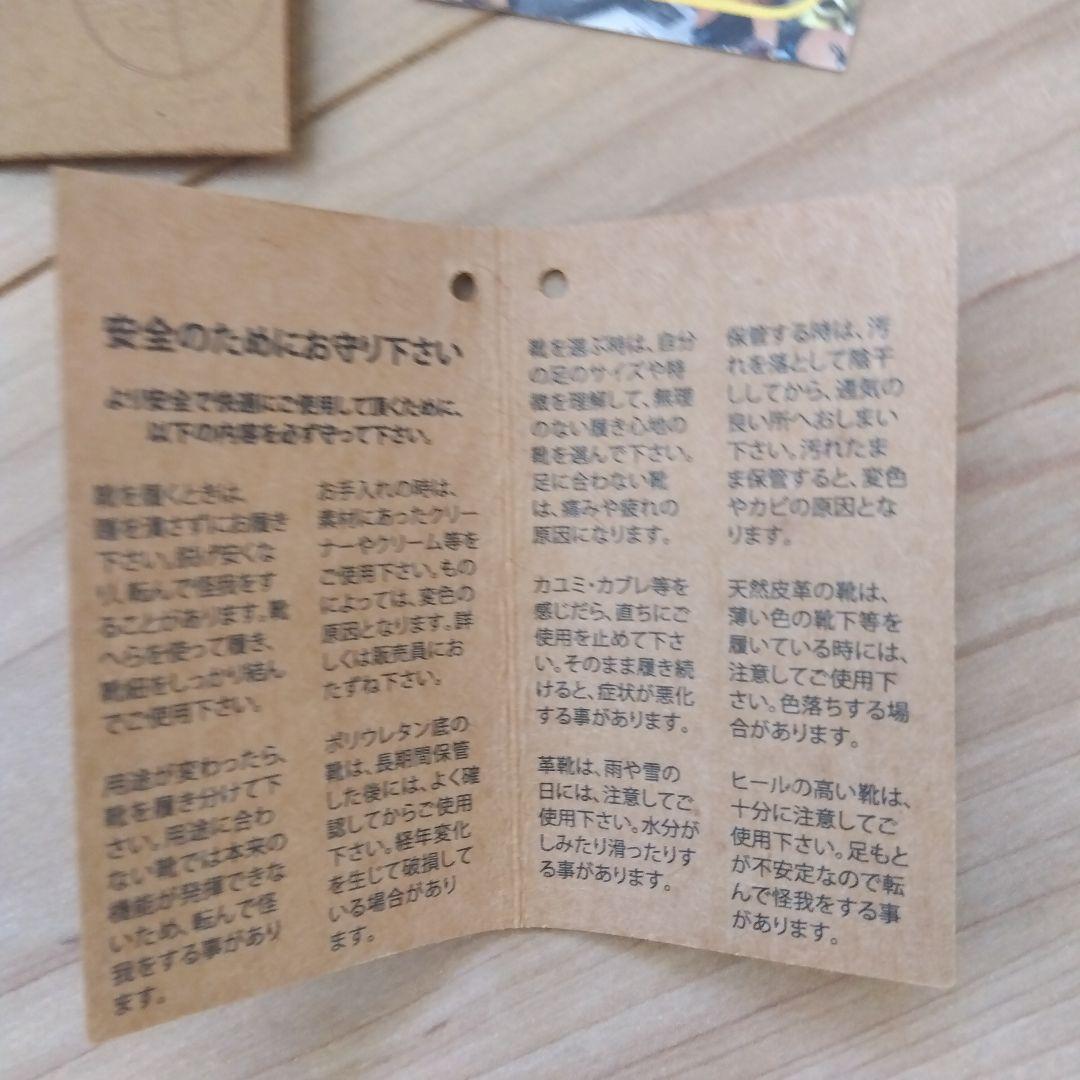 安全のためにお守り下さい
より安全で快適にご使用して頂くために、
以下の内容を必ず守って下さい。
靴を履くときは、
踵を潰さずにお履き
下さい。脱げ安くな
り、転んで怪我をす
ることがあります。靴
べらを使って履き、
靴紐をしっかり結ん
でご使用下さい。
用途が変わったら、
靴を履き分けて下
さい。用途に合わ
ない靴では本来の
機能が発揮できな
いため、転んで怪
我をする事があり
ます。
お手入れの時は、
素材にあったクリー
ナーやクリーム等を
ご使用下さい。もの
によっては、変色の
原因となります。詳
しくは販売員にお
たずね下さい。
ポリウレタン底の
靴は、長期間保管
した後には、よく確
認してからご使用
下さい。経年変化
を生じて破損して
いる場合があり
ます。
靴を選ぶ時は、自分
の足のサイズや特
徴を理解して、無理
のない履き心地の
靴を選んで下さい。
足に合わない靴
は、痛みや疲れの
原因になります。
カユミ・カブレ等を
感じだら、直ちにご
使用を止めて下さ
い。そのまま履き続
けると、症状が悪化
する事があります。
革靴は、雨や雪の
日には、注意してご
使用下さい。水分が
しみたり滑ったりす
る事があります。
保管する時は、汚
れを落として陰干
ししてから、通気の
良い所へおしまい
下さい。汚れたま
ま保管すると、変色
やカビの原因とな
ります。
天然皮革の靴は、
薄い色の靴下等を
履いている時には、
注意してご使用下
さい。色落ちする場
合があります。
ヒールの高い靴は、
十分に注意してご
使用下さい。足もと
が不安定なので転
んで怪我をする事
があります。